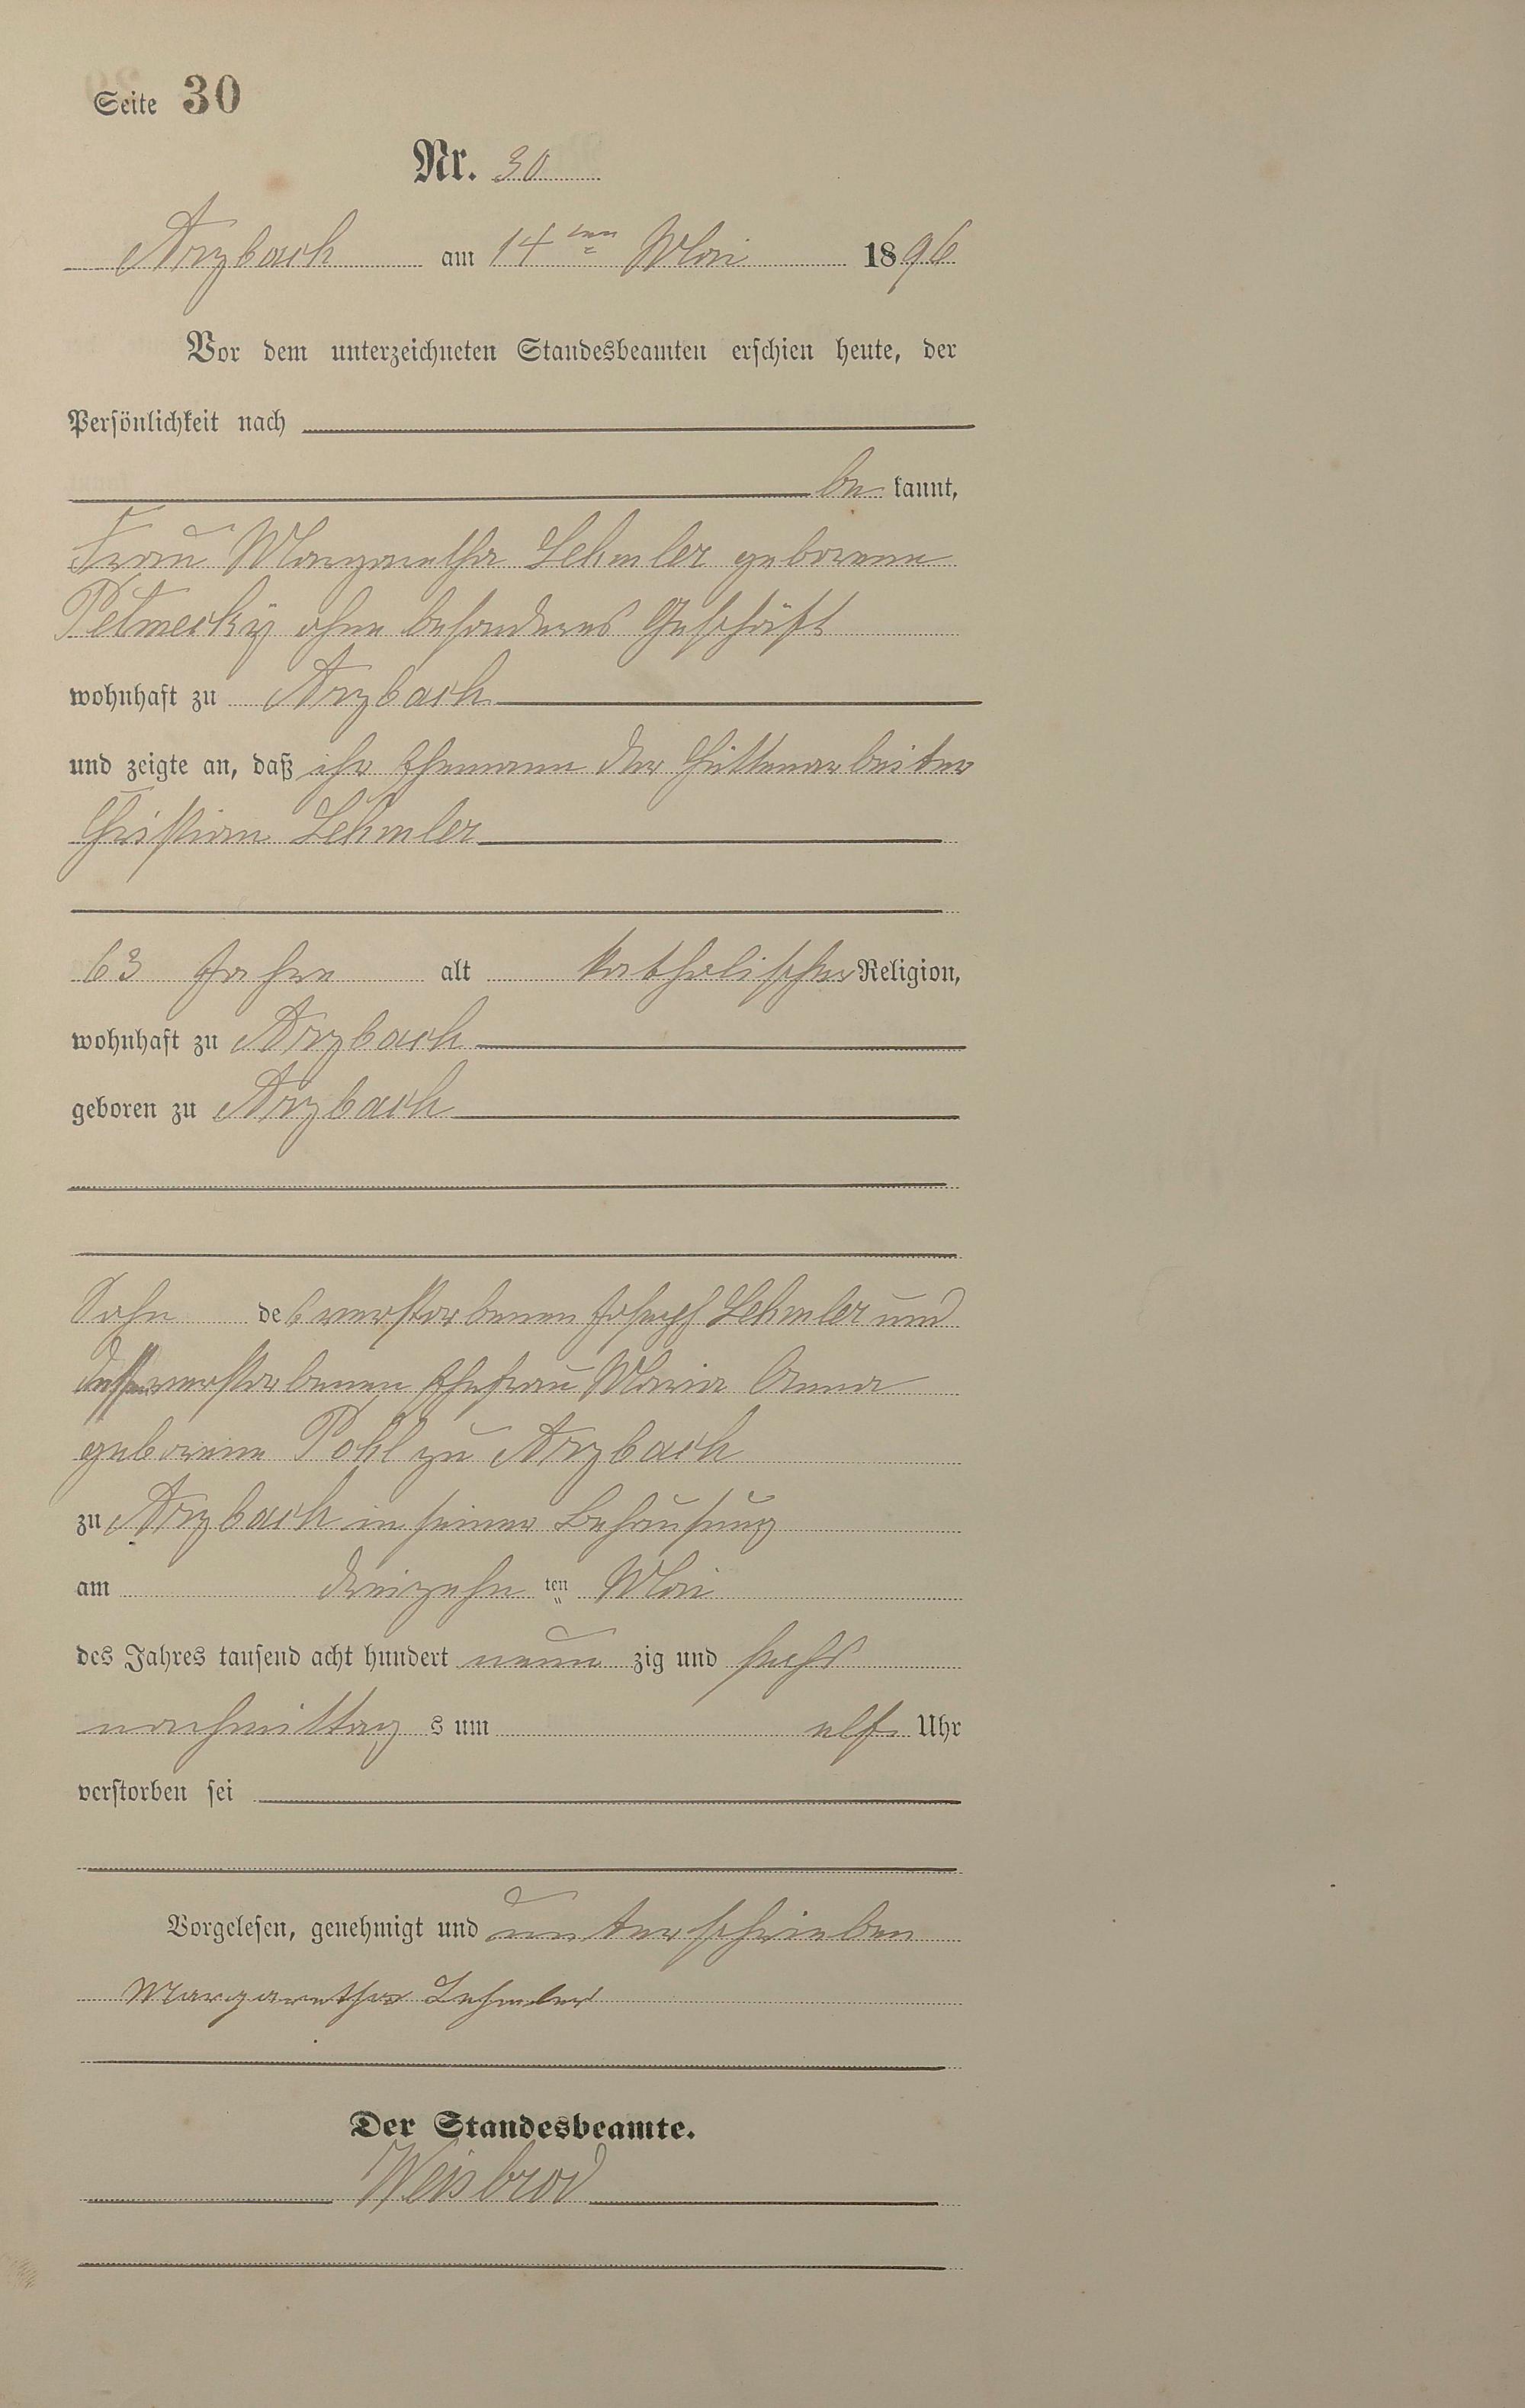 Seite 30
Nr. 30
Arzbach am 14ten Mai 1896
Vor dem unterzeichneten Standesbeamten erschien heute, der
Persönlichkeit nach
be kannt,
Frau Margaretha Lehmler geborene
Petmecky ohne besonderes Geschäft
wohnhaft zu Arzbach
und zeigte an, daß ihr Ehemann der Hüttenarbeiter
Christian Lehmler
63 Jahre alt katholischer Religion,
wohnhaft zu Arzbach
geboren zu Arzbach
Sohn des verstorbenen Joseph Lehmler und
dessen verstorbenen Ehefrau Maria Anna
geborene Pohl zu Arzbach
zu Arzbach in seiner Behausung
am dreizehn ten Mai
des Jahres tausend acht hundert neun zig und sechs
nachmittag s um elf Uhr
verstorben sei
Vorgelesen, genehmigt und unterschrieben
Margaretha Lehmler
Der Standesbeamte.
Weisbrod